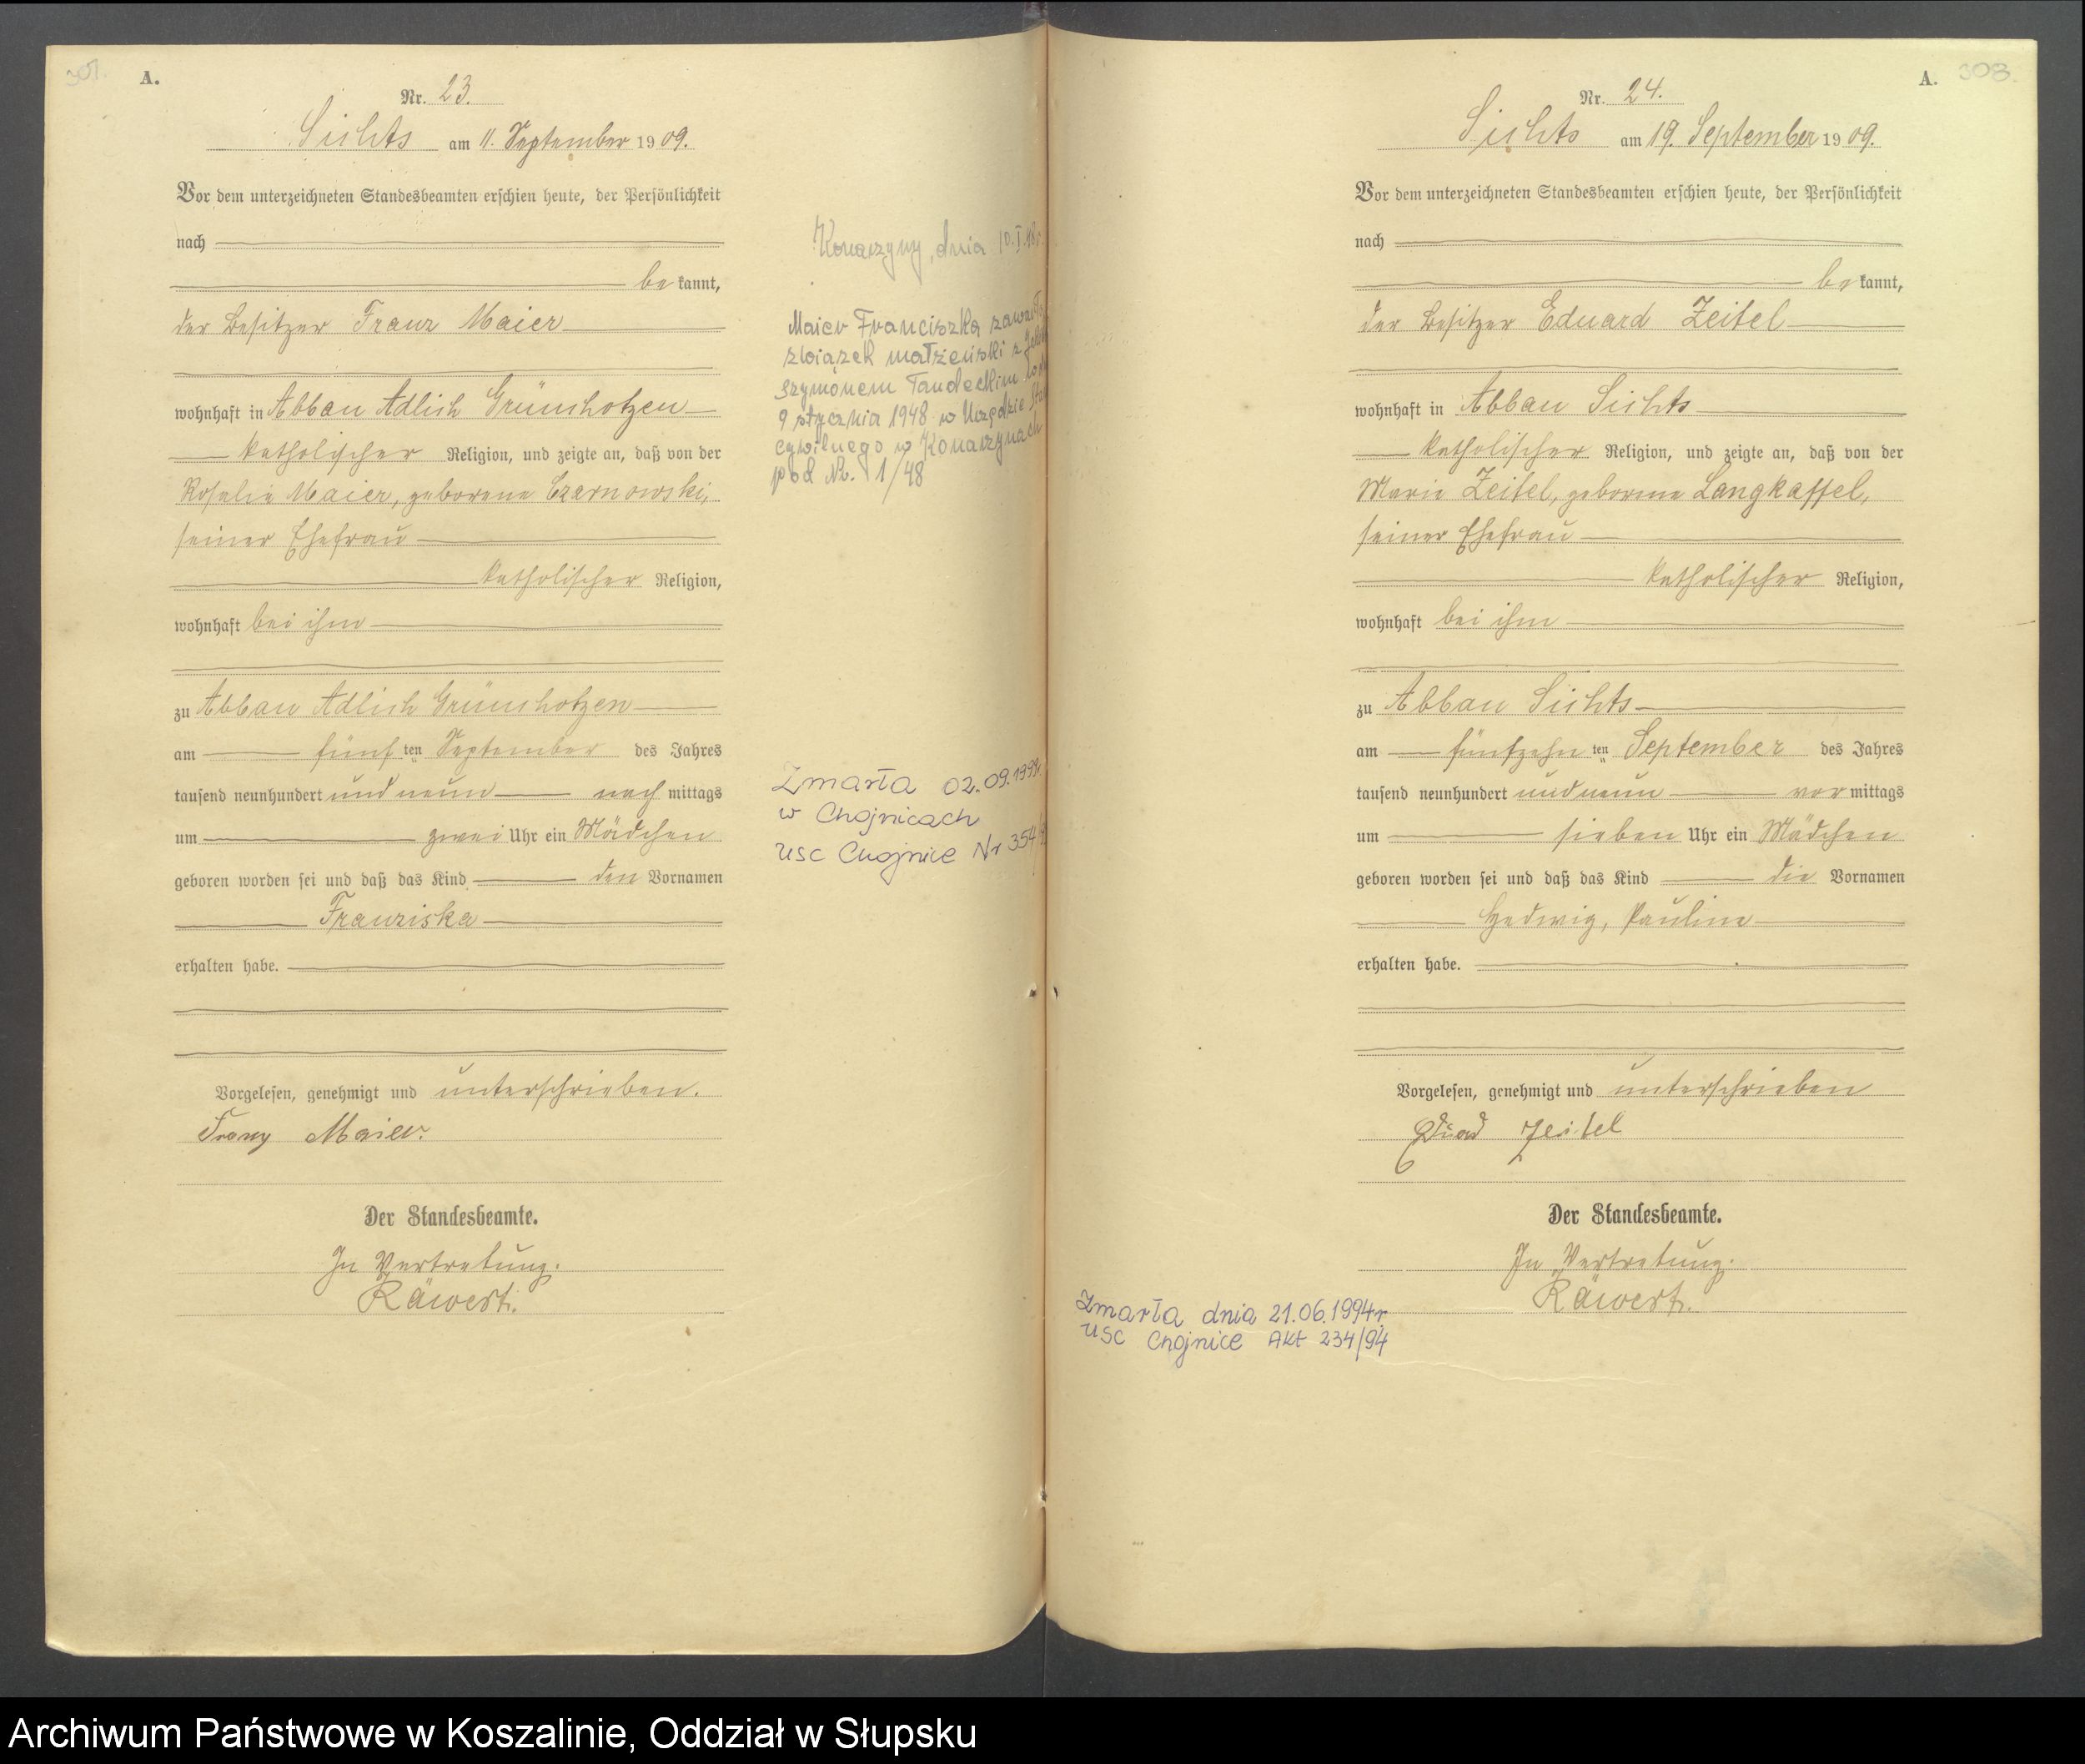 A.
Nr. 23.
Sichts am 11. September 1909.
Vor dem unterzeichneten Standesbeamten erschien heute, der Persönlichkeit
nach
be kannt,
der Besitzer Franz Maier
wohnhaft in Abbau Adlich Grünchotzen
katholischer Religion, und zeigte an, daß von der
Rosalie Maier, geborene Czarnowski,
seiner Ehefrau
katholischer Religion,
wohnhaft bei ihm
zu Abbau Adlich Grünchotzen
am fünf ten September des Jahres
tausend neunhundert und neun nach mittags
um zwei Uhr ein Mädchen
geboren worden sei und daß das Kind den Vornamen
Franziska
erhalten habe.
Vorgelesen, genehmigt und unterschrieben.
Franz Maier.
Der Standesbeamte.
In Vertretung.
Räwert.
Konarzyny, dnia 10.I.48r.
Maier Franciszka zawarła
związek małżeński z
Szymonem Tandeckim
9 stycznia 1948 w Urzędzie
cywilnego w Konarzynach
pod Nr. 1/48
Zmarła 02.09.
w Chojnicach
USC Chojnice Nr 354
A. 303.
Nr. 24.
Sichts am 19. September 1909.
Vor dem unterzeichneten Standesbeamten erschien heute, der Persönlichkeit
nach
be kannt,
der Besitzer Eduard Zeitel
wohnhaft in Abbau Sichts
katholischer Religion, und zeigte an, daß von der
Marie Zeitel, geborene Langkaffel,
seiner Ehefrau
katholischer Religion,
wohnhaft bei ihm
zu Abbau Sichts
am fünfzehn ten September des Jahres
tausend neunhundert und neun vor mittags
um sieben Uhr ein Mädchen
geboren worden sei und daß das Kind die Vornamen
Hedwig, Pauline
erhalten habe.
Vorgelesen, genehmigt und unterschrieben
Zeitel
Der Standesbeamte.
In Vertretung.
Räwert.
Zmarła dnia 21.06.1994r.
USC Chojnice Akt 234/94
Archiwum Państwowe w Koszalinie, Oddział w Słupsku